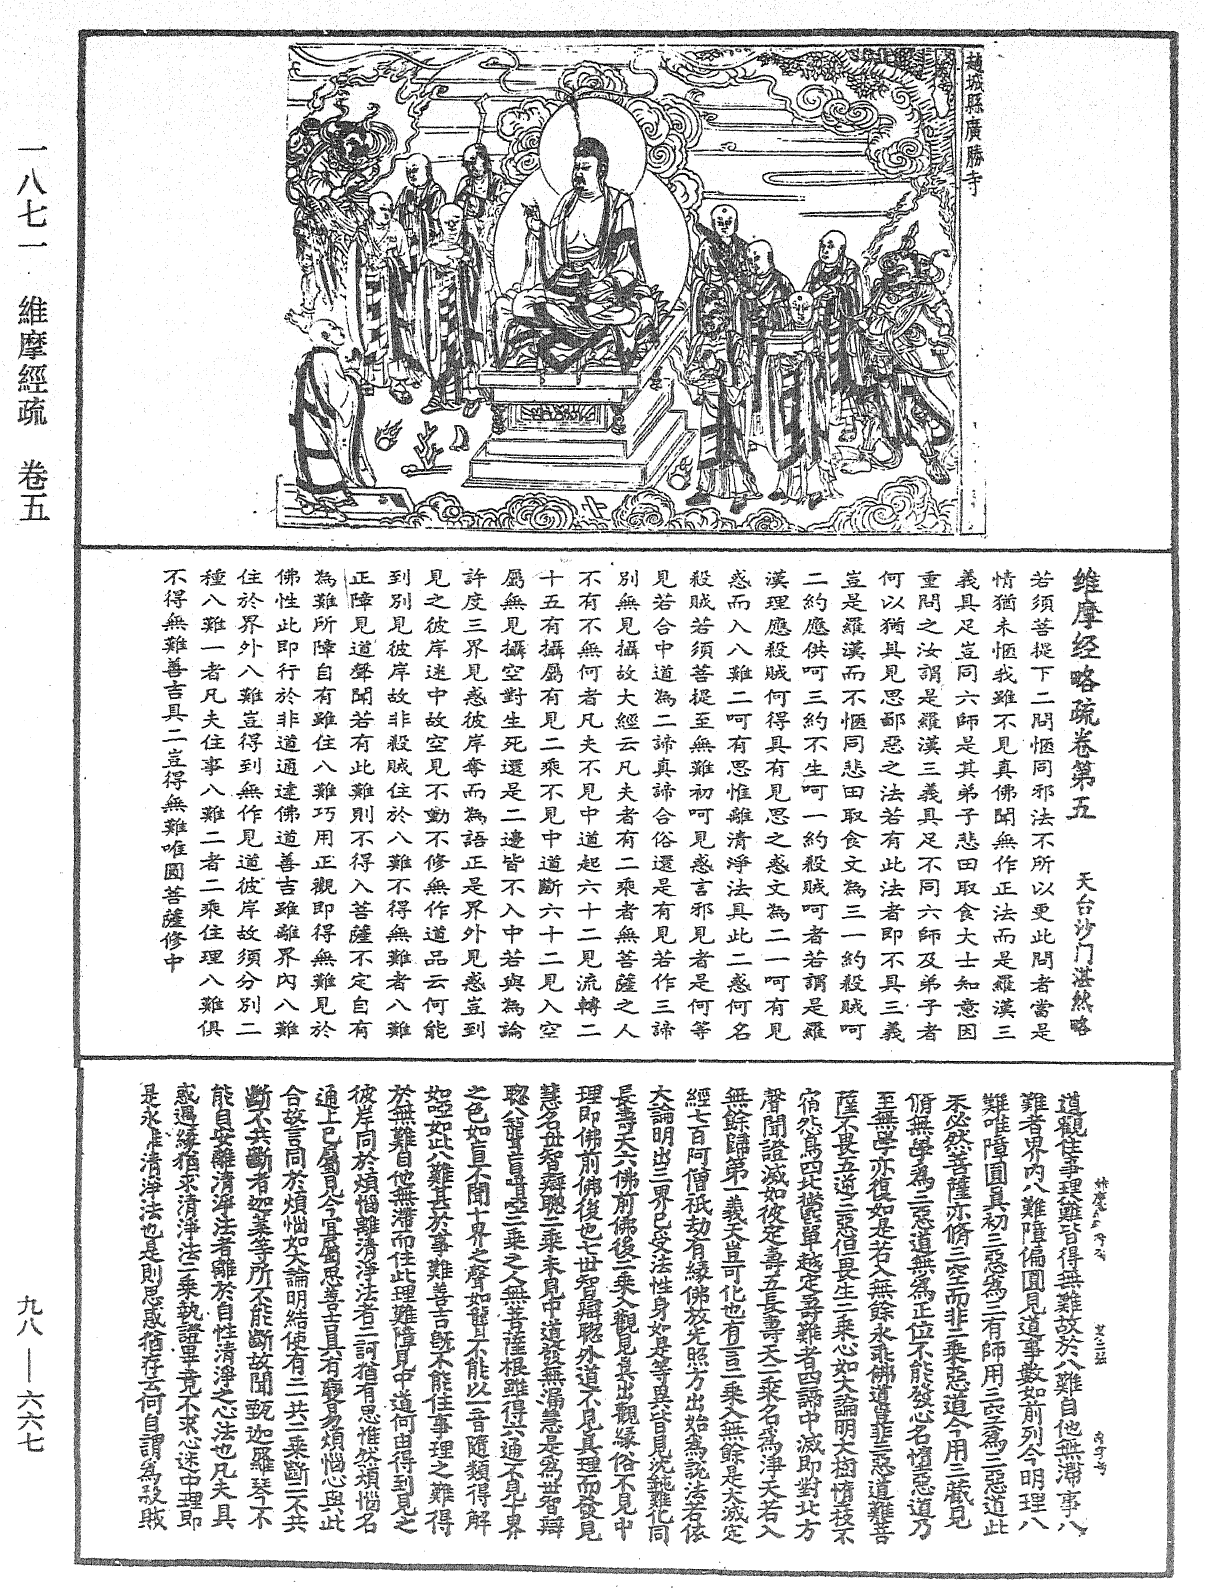 一八七一　維摩經疏　卷五
九八—六六七
趙城縣廣勝寺
维摩经略疏卷第五　天台沙门湛然略
若須菩提下二問愜同邪法不所以更此問者當是
情猶未愜我雖不見真佛聞無作正法而是羅漢三
義具足豈同六師是其弟子悲田取食大士知意因
重問之汝謂是羅漢三義具足不同六師及弟子者
何以猶具見思鄙惡之法若有此法者即不具三義
豈是羅漢而不愜同悲田取食文為三一約殺賊呵
二約應供呵三約不生呵一約殺賊呵者若謂是羅
漢理應殺賊何得具有見思之惑文為二一呵有見
惑而入八難二呵有思惟離清淨法具此二惑何名
殺賊若須菩提至無難初呵見惑言邪見者是何等
見若合中道為二諦真諦合俗還是有見若作三諦
別無見攝故大經云凡夫者有二乘者無菩薩之人
不有不無何者凡夫不見中道起六十二見流轉二
十五有攝屬有見二乘不見中道斷六十二見入空
屬無見攝空對生死還是二邊皆不入中若與為論
許度三界見惑彼岸奪而為語正是界外見惑豈到
見之彼岸迷中故空見不動不修無作道品云何能
到別見彼岸故非殺賊住於八難不得無難者八難
正障見道聲聞若有此難則不得入菩薩不定自有
為難所障自有雖住八難巧用正觀即得無難見於
佛性此即行於非道通達佛道善吉雖離界內八難
住於界外八難豈得到無作見道彼岸故須分別二
種八難一者凡夫住事八難二者二乘住理八難俱
不得無難善吉具二豈得無難唯圓菩薩修中
道觀住事理難皆得無難故於八難自他無滯事八
難者界內八難障偏圓見道事數如前列今明理八
難唯障圓真初三惡為三有師用三空為三惡道此
未必然菩薩亦脩三空而非二乘惡道今用三藏見
脩無學為三惡道無為正位不能發心名墮惡道乃
至無學亦復如是若入無餘永乖佛道豈非三惡道難菩
薩不畏五道三惡但畏生二乘心如大論明大樹惰枝不
宿怨鳥四北欝單越定壽難者四諦中滅即對北方
聲聞證滅如彼定壽五長壽天二乘名為淨天若入
無餘歸第一義天豈可化也有言二乘入無餘是大滅定
經七百阿僧祇劫有緣佛放光照方出始為說法若依
大論明出三界已受法性身如是等異皆見沈難化同
長壽天六佛前佛後二乘入觀見真出觀緣俗不見中
理即佛前佛後也七世智辯聰外道不見真理而發見
慧名世智辯聰二乘未見中道發無漏慧是為世智辯
聰八聾盲瘖瘂二乘之人無菩薩根雖得六通不見十界
之色如盲不聞十界之聲如聾不能以一音隨類得解
如啞如此八難甚於事難善吉旣不能住事理之難得
於無難自他無滯而住此理難障見中道何由得到見之
彼岸同於煩惱離清淨法者二訶猶有思惟然煩惱名
通上已屬見今宜屬思善吉具有變易煩惱心與此
合故言同於煩惱如大論明結使有二一共二乘斷二不共
斷不共斷者迦葉等所不能斷故聞甄迦羅琴不
能自安離清淨法者離於自性清淨之心法也凡夫具
惑遇緣猶求清淨法二乘執證畢竟不求心迷中理即
是永離清淨法也是則思惑猶存云何自謂為殺賊